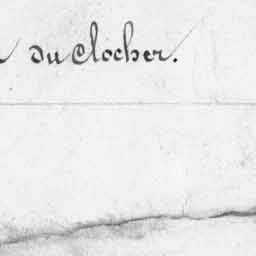 du Clocher.